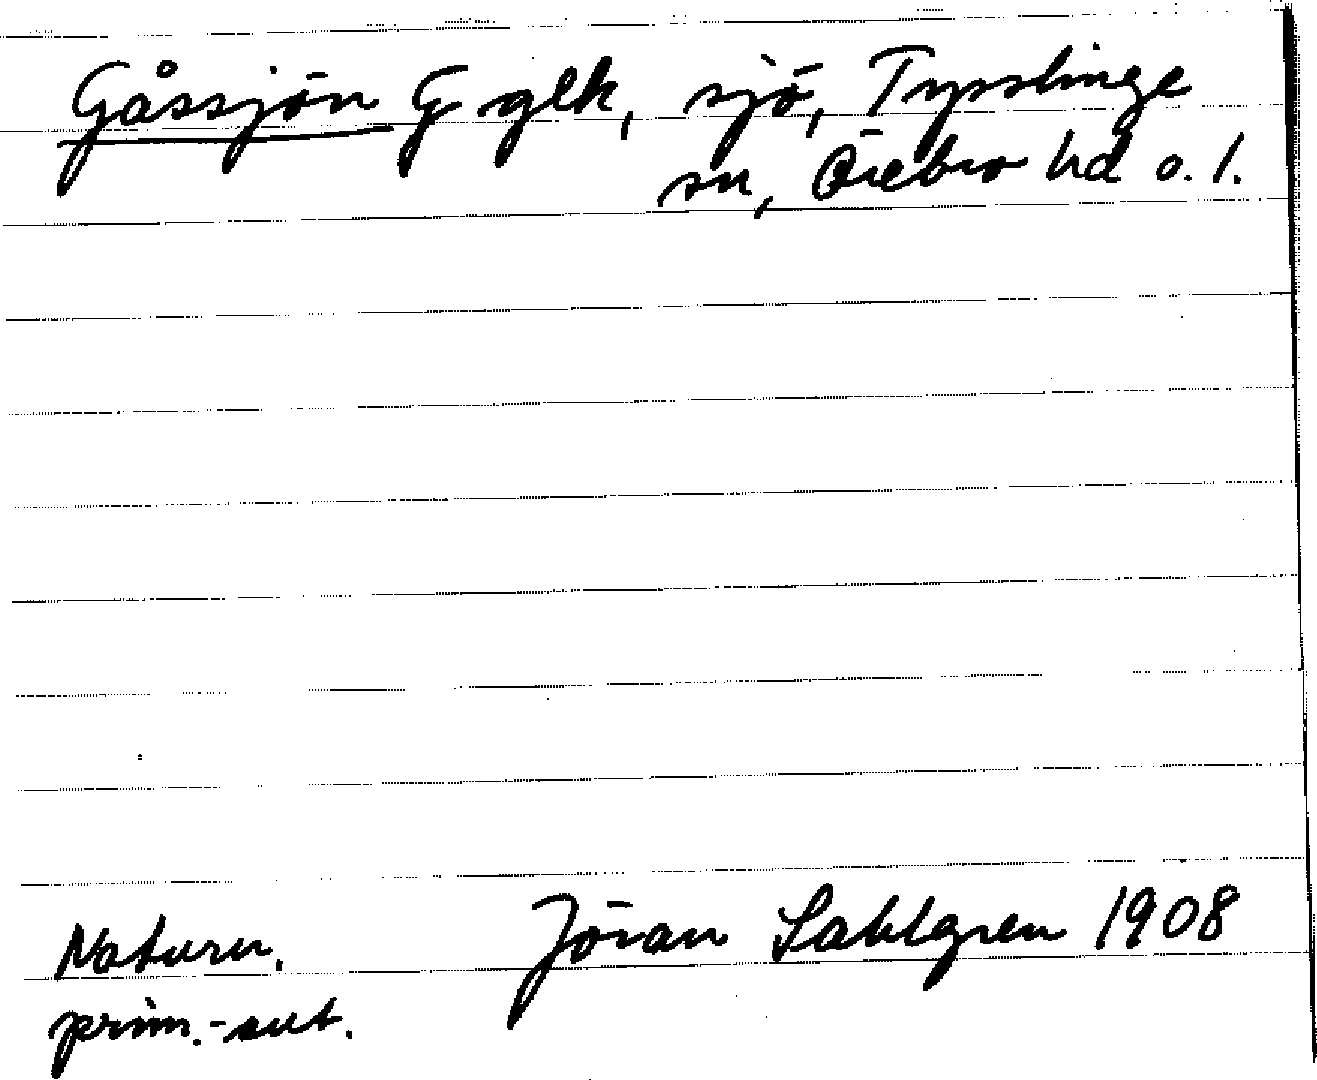 Gåssjön G glk, sjö, Tysslinge
sn, Örebro hd o. l.
Naturn. Jöran Sahlgren 1908
prim.-sut.